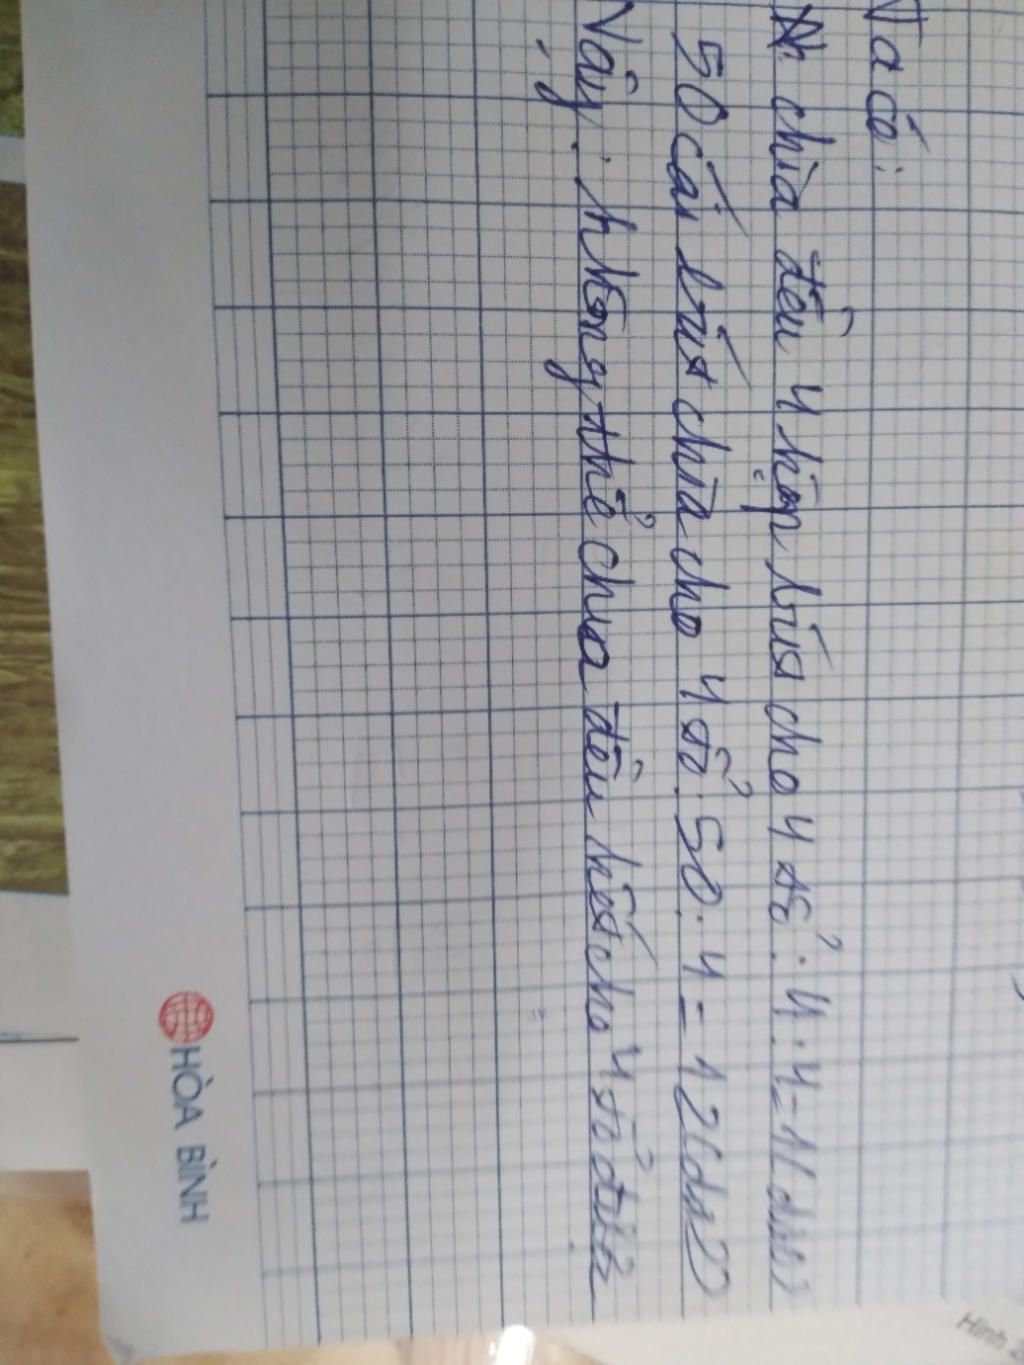 Ta có:
chia đều 4 hộp bút cho 4 tổ: 4:4=1(dư 0)
50 cái bút chia cho 4 tổ: 50:4=12(dư 2)
Vậy: không thể chia đều hết cho 4 tổ được
HÒA BÌNH
Hình 2